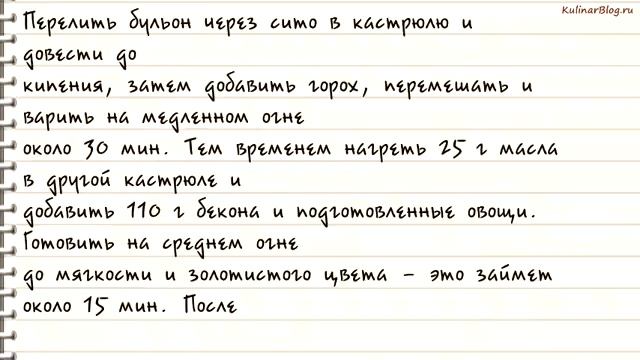 KulinarBlog.ru
Перелить бульон через сито в кастрюлю и
довести до
кипения, затем добавить горох, перемешать и
варить на медленном огне
около 30 мин. Тем временем нагреть 25 г масла
в другой кастрюле и
добавить 110 г бекона и подготовленные овощи.
Готовить на среднем огне
до мягкости и золотистого цвета - это займет
около 15 мин. После